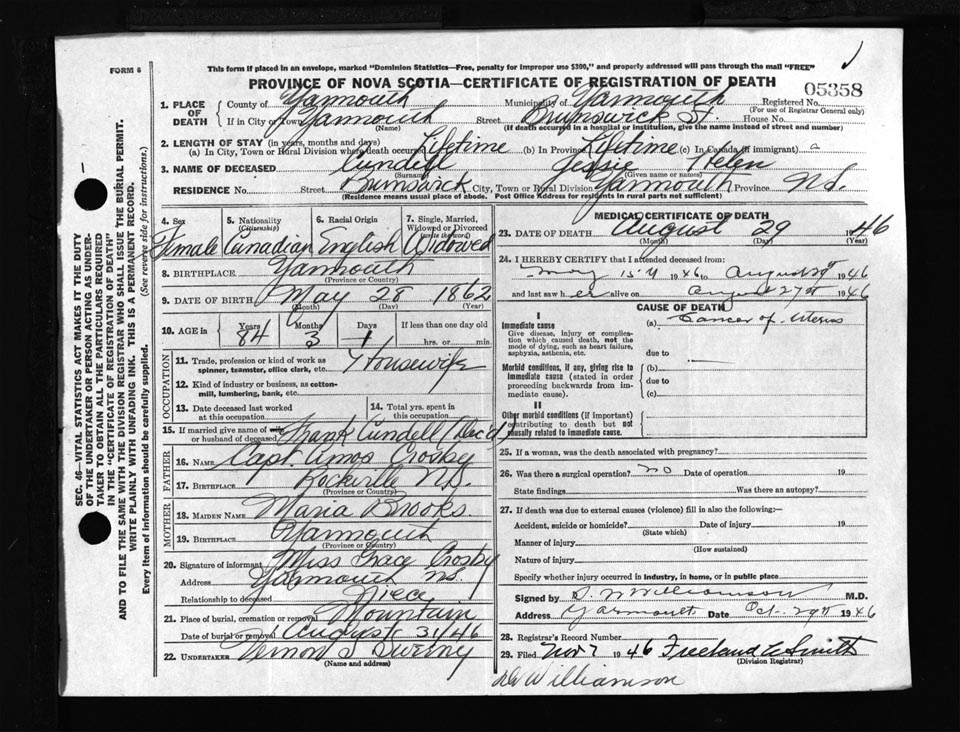 FORM 6
This form if placed in an envelope, marked "Dominion Statistics—Free, penalty for improper use $300," and properly addressed will pass through the mail "FREE"
PROVINCE OF NOVA SCOTIA—CERTIFICATE OF REGISTRATION OF DEATH
05358
SEC. 46—VITAL STATISTICS ACT MAKES IT THE DUTY
OF THE UNDERTAKER OR PERSON ACTING AS UNDER-
TAKER TO OBTAIN ALL THE PARTICULARS REQUIRED
IN THE "CERTIFICATE OF REGISTRATION OF DEATH"
AND TO FILE THE SAME WITH THE DIVISION REGISTRAR WHO SHALL ISSUE THE BURIAL PERMIT.
WRITE PLAINLY WITH UNFADING INK. THIS IS A PERMANENT RECORD.
Every item of information should be carefully supplied. (See reverse side for instructions.)
1. PLACE OF DEATH County of Yarmouth Municipality of Yarmouth Registered No.
(For use of Registrar General only)
If in City or Town Yarmouth Street Brunswick St. House No.
(Name) (If death occurred in a hospital or institution, give the name instead of street and number)
2. LENGTH OF STAY (in years, months and days)
(a) In City, Town or Rural Division where death occurred Lifetime (b) In Province Lifetime (c) In Canada (if immigrant)
3. NAME OF DECEASED Cundell Jessie Helen
(Surname) (Given name or names)
RESIDENCE No. Street City, Town or Rural Division Yarmouth Province N.S.
(Residence means usual place of abode. Post Office Address for residents in rural parts not sufficient)
4. Sex Female
5. Nationality (Citizenship) Canadian
6. Racial Origin English
7. Single, Married, Widowed or Divorced (write the word) Widowed
8. BIRTHPLACE Yarmouth
(Province or Country)
9. DATE OF BIRTH May 28 1862
(Month) (Day) (Year)
10. AGE in Years 84 Months 3 Days 1 If less than one day old
hrs. or min.
OCCUPATION
11. Trade, profession or kind of work as spinner, teamster, office clerk, etc. Housewife
12. Kind of industry or business, as cotton-mill, lumbering, bank, etc.
13. Date deceased last worked at this occupation
14. Total yrs. spent in this occupation
15. If married give name of wife or husband of deceased Frank Cundell (Dec'd)
FATHER
16. NAME Capt. Amos Crosby
17. BIRTHPLACE Rockville N.S.
(Province or Country)
MOTHER
18. MAIDEN NAME Maria Brooks
19. BIRTHPLACE Yarmouth
(Province or Country)
20. Signature of informant Miss Crosby
Address Yarmouth N.S.
Relationship to deceased Niece
21. Place of burial, cremation or removal Mountain
Date of burial or removal August 31 46
22. UNDERTAKER Vernon S Sweeny
(Name and address)
MEDICAL CERTIFICATE OF DEATH
23. DATE OF DEATH August 29 1946
(Month) (Day) (Year)
24. I HEREBY CERTIFY that I attended deceased from:
May 15th 1946 to August 29th 1946
and last saw her alive on August 27th 1946
CAUSE OF DEATH
I
Immediate cause (a) Cancer of Uterus
Give disease, injury or complication which caused death, not the mode of dying, such as heart failure, asphyxia, asthenia, etc.
due to
Morbid conditions, if any, giving rise to immediate cause (stated in order proceeding backwards from immediate cause). (b)
due to
(c)
II
Other morbid conditions (if important) contributing to death but not causally related to immediate cause.
25. If a woman, was the death associated with pregnancy?
26. Was there a surgical operation? no Date of operation 19
State findings Was there an autopsy?
27. If death was due to external causes (violence) fill in also the following:—
Accident, suicide or homicide? Date of injury 19
(State which)
Manner of injury
(How sustained)
Nature of injury
Specify whether injury occurred in industry, in home, or in public place
Signed by S. W Williamson M.D.
Address Yarmouth Date Oct. 29th 1946
28. Registrar's Record Number
29. Filed Nov 7 1946 Freeland E Smith
(Division Registrar)
Dr Williamson